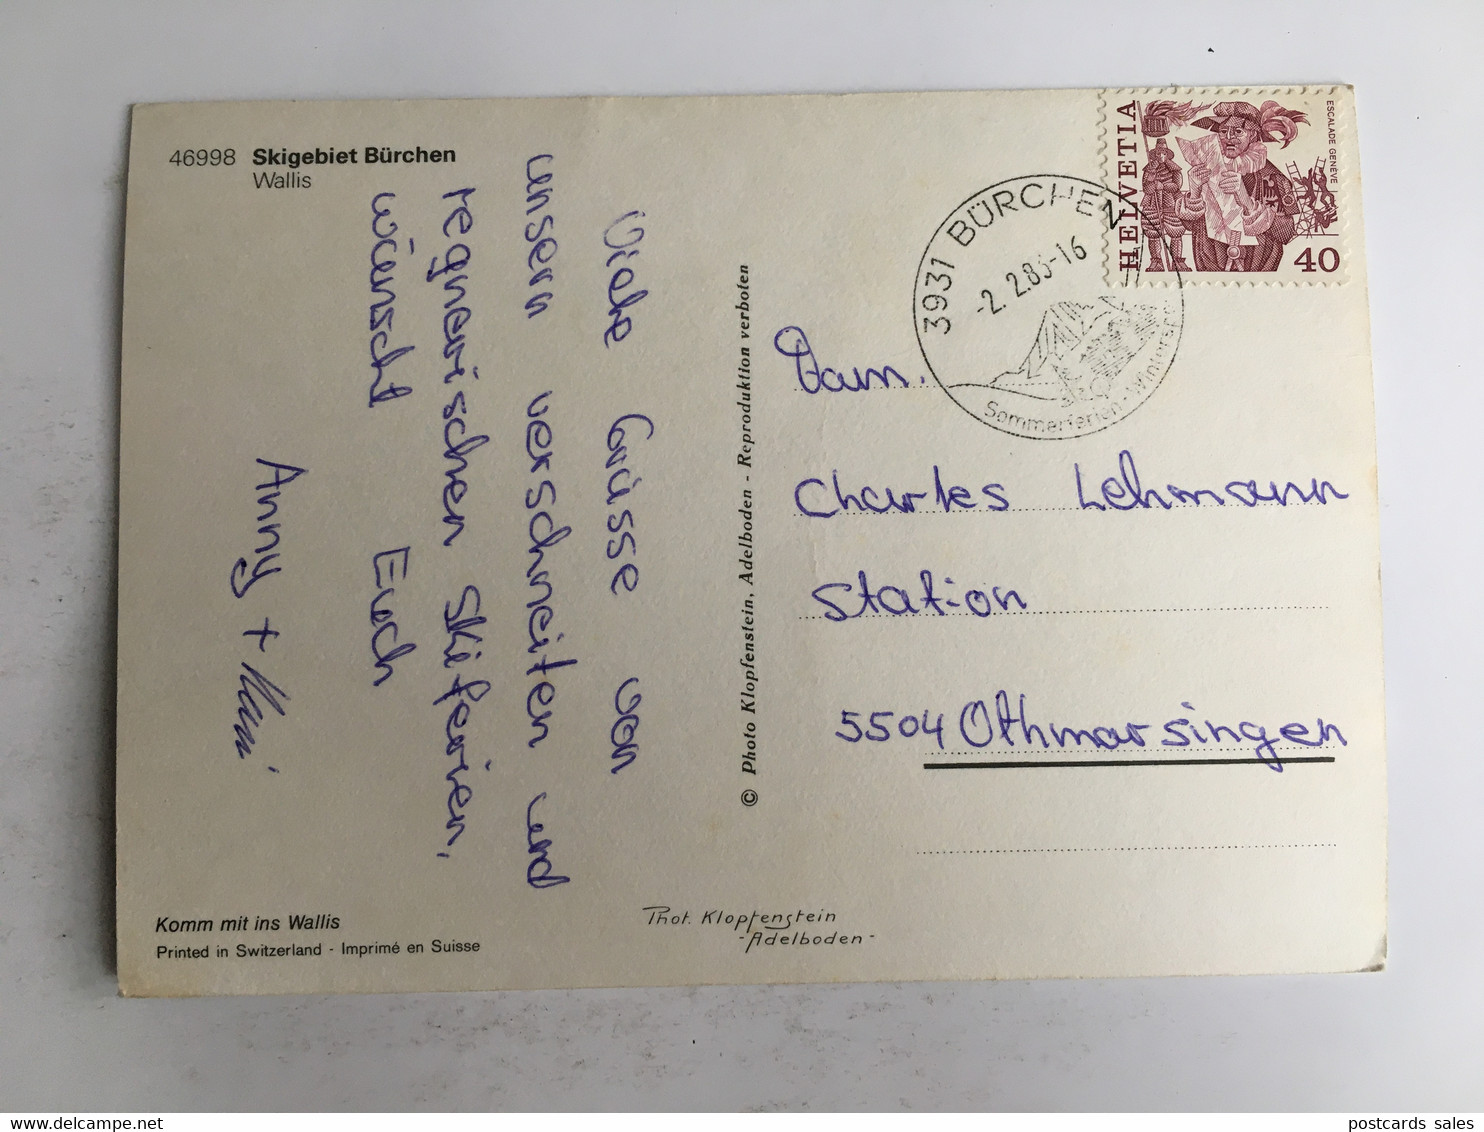 46998 Skigebiet Bürchen
Wallis
Viele Grüsse von
unsern verschneiten und
regnerischen Skiferien,
wünscht Euch
Anny +
© Photo Klopfenstein, Adelboden - Reproduktion verboten
HELVETIA
ESCALADE GENÈVE
40
3931 BÜRCHEN
-2.2.83-16
Sommerferien-Winterspo
Fam.
Charles Lehmann
Station
5504 Othmarsingen
Komm mit ins Wallis
Printed in Switzerland - Imprimé en Suisse
Phot. Klopfenstein
-Adelboden-
postcards sales